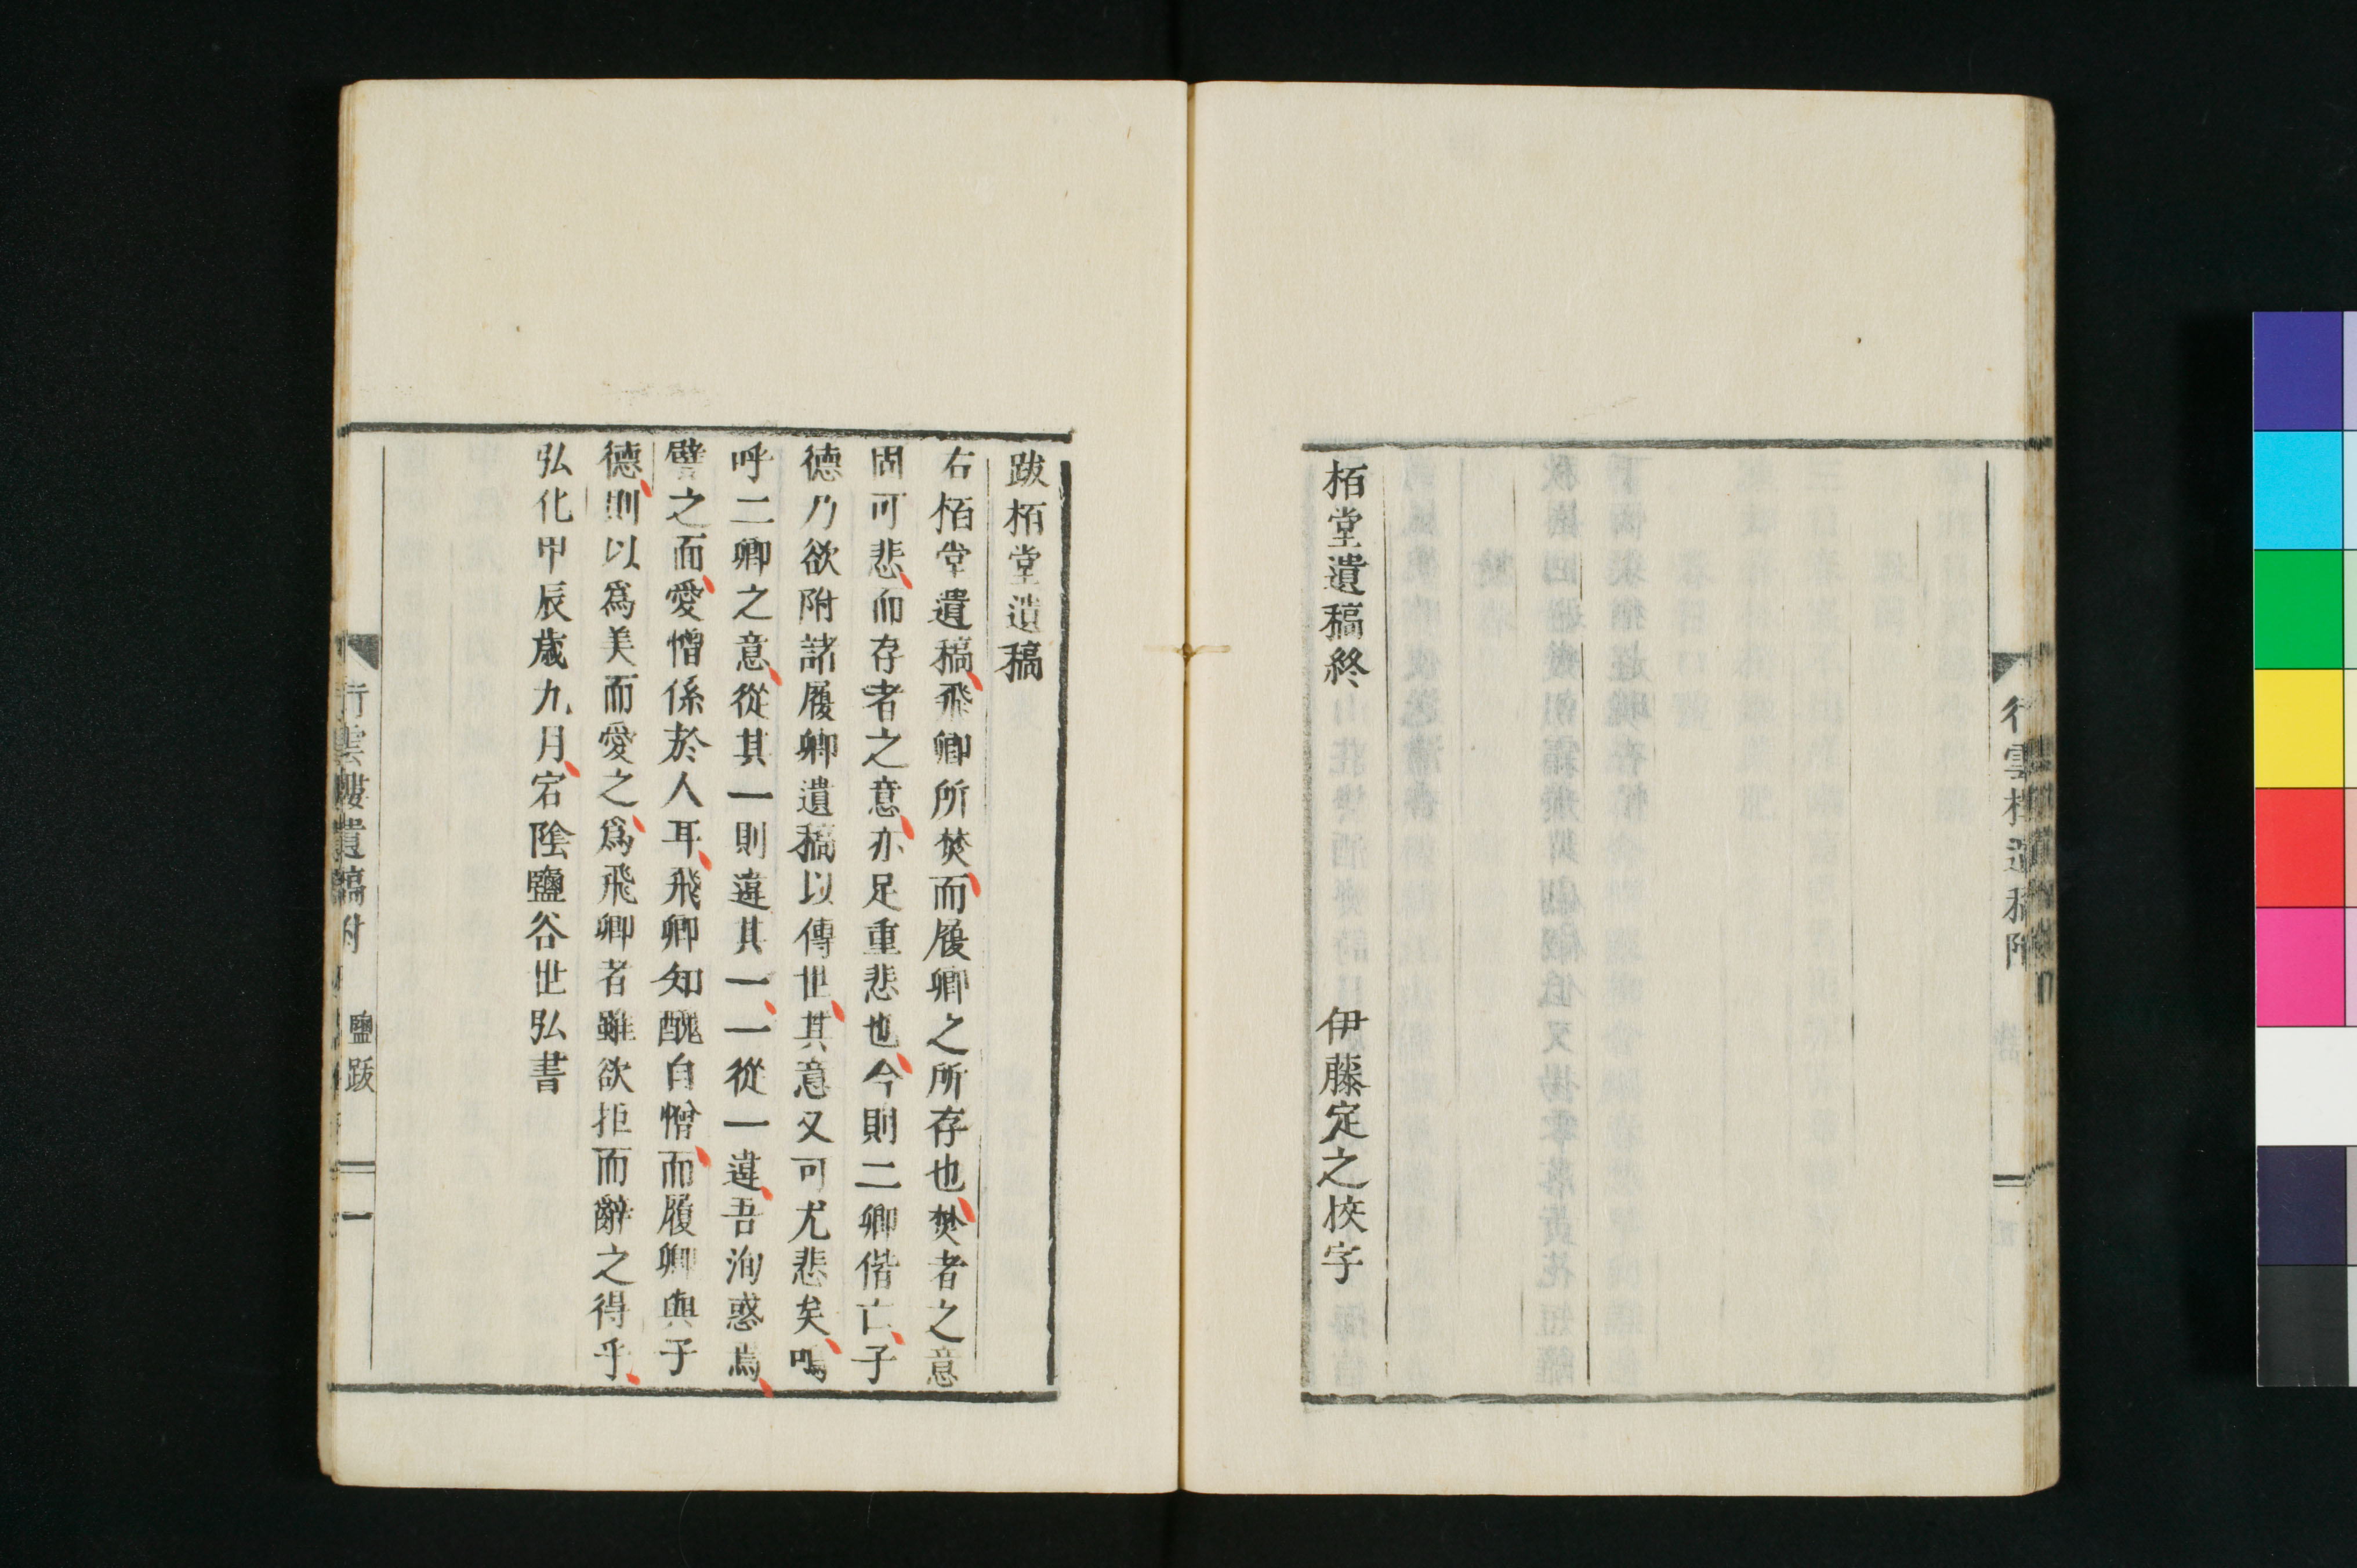 栢堂遺稿終　伊藤定之校字
跋栢堂遺稿
右栢堂遺稿飛卿所焚而履卿之所存也焚者之意
固可悲而存者之意亦足重悲也今則二卿偕亡子
德乃欲附諸履卿遺稿以傳世其意又可尤悲矣嗚
呼二卿之意從其一則違其一一從一違吾洵惑焉
譬之而愛憎係於人耳飛卿知醜自憎而履卿與子
德則以爲美而愛之爲飛卿者雖欲拒而辭之得乎
弘化甲辰歳九月宕陰鹽谷世弘書
行雲樓遺稿附　鹽跋　一